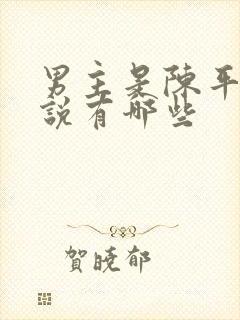 男主是陈平
說有哪些
賀曉郁